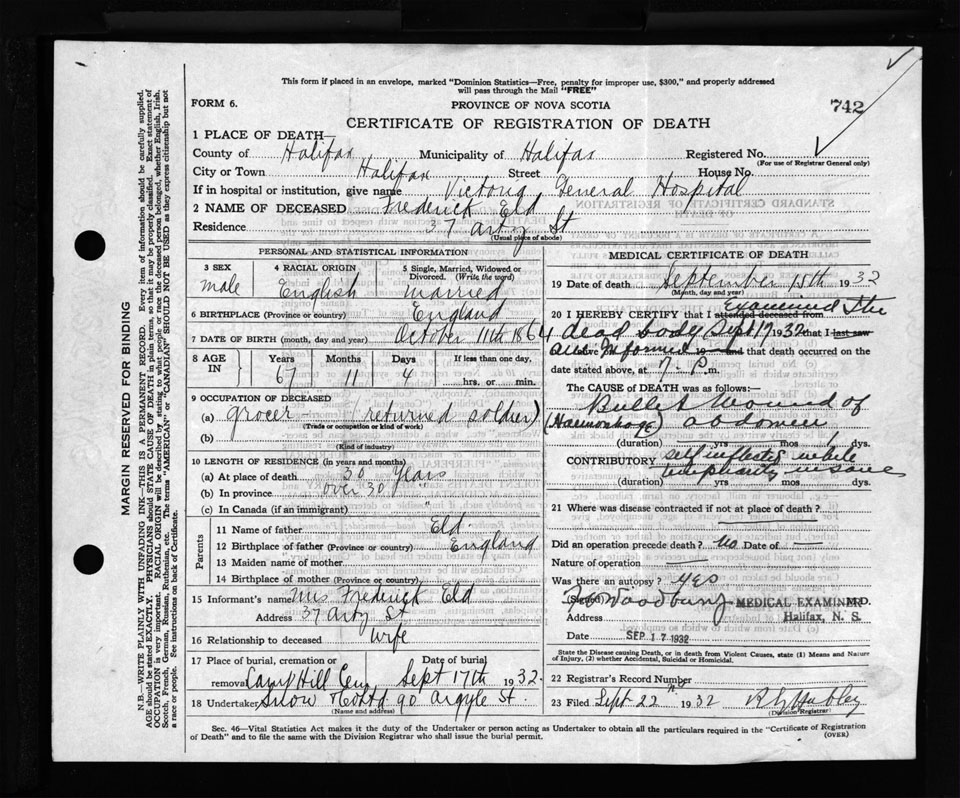 This form if placed in an envelope, marked "Dominion Statistics—Free, penalty for improper use, $300," and properly addressed
will pass through the Mail "FREE"
FORM 6.
PROVINCE OF NOVA SCOTIA
742
CERTIFICATE OF REGISTRATION OF DEATH
1 PLACE OF DEATH—
County of Halifax Municipality of Halifax Registered No.
(For use of Registrar General only)
City or Town Halifax Street House No.
If in hospital or institution, give name Victoria General Hospital
2 NAME OF DECEASED Frederick Eld
Residence 37 Arty St
(Usual place of abode)
PERSONAL AND STATISTICAL INFORMATION
3 SEX 4 RACIAL ORIGIN 5 Single, Married, Widowed or Divorced. (Write the word)
male English married
6 BIRTHPLACE (Province or country) England
7 DATE OF BIRTH (month, day and year) October 11th 1864
8 AGE IN Years Months Days If less than one day,
67 11 4 hrs. or min.
9 OCCUPATION OF DECEASED
(a) grocer (returned soldier)
(Trade or occupation or kind of work)
(b)
(Kind of industry)
10 LENGTH OF RESIDENCE (in years and months)
(a) At place of death 30 years
(b) In province over 30 "
(c) In Canada (if an immigrant) "
Parents
11 Name of father Eld
12 Birthplace of father (Province or country) England
13 Maiden name of mother
14 Birthplace of mother (Province or country)
15 Informant's name Mrs Frederick Eld
Address 37 Arty St
16 Relationship to deceased wife
17 Place of burial, cremation or removal Camp Hill Cem Date of burial Sept 17th 1932
18 Undertaker Snow & Co Ltd 90 Argyle St.
(Name and address)
MEDICAL CERTIFICATE OF DEATH
19 Date of death September 15th 1932
(Month, day and year)
20 I HEREBY CERTIFY that I attended deceased from Examined the
dead body Sept 17 1932 that I last saw
alive Informed 19 and that death occurred on the
date stated above, at 7- P.m.
The CAUSE OF DEATH was as follows:—
Bullet Wound of
(Haemorrhage) abdomen
(duration) yrs mos 1 dys.
CONTRIBUTORY self inflicted while
temporarily insane
(duration) yrs mos dys.
21 Where was disease contracted if not at place of death?
Did an operation precede death? No Date of —
Nature of operation
Was there an autopsy? Yes
(Signed) Woodbury MEDICAL EXAMINER M.D.
Address Halifax, N. S.
Date SEP 17 1932
State the Disease causing Death, or in death from Violent Causes, state (1) Means and Nature of Injury, (2) whether Accidental, Suicidal or Homicidal.
22 Registrar's Record Number
23 Filed Sept 22nd 1932
(Division Registrar)
Sec. 46—Vital Statistics Act makes it the duty of the Undertaker or person acting as Undertaker to obtain all the particulars required in the "Certificate of Registration
of Death" and to file the same with the Division Registrar who shall issue the burial permit.
(OVER)
MARGIN RESERVED FOR BINDING
N.B.—WRITE PLAINLY WITH UNFADING INK—THIS IS A PERMANENT RECORD. Every item of information should be carefully supplied.
AGE should be stated EXACTLY. PHYSICIANS should STATE CAUSE OF DEATH in plain terms, so that it may be properly classified. Exact statement of
OCCUPATION is very important. RACIAL ORIGIN will be described by stating to what people or race the deceased person belonged, whether English, Irish,
Scotch, French, German, Russian, Ruthenian, etc. The terms "AMERICAN" or "CANADIAN" SHOULD NOT BE USED as they express citizenship but not
a race or people. See instructions on back of Certificate.